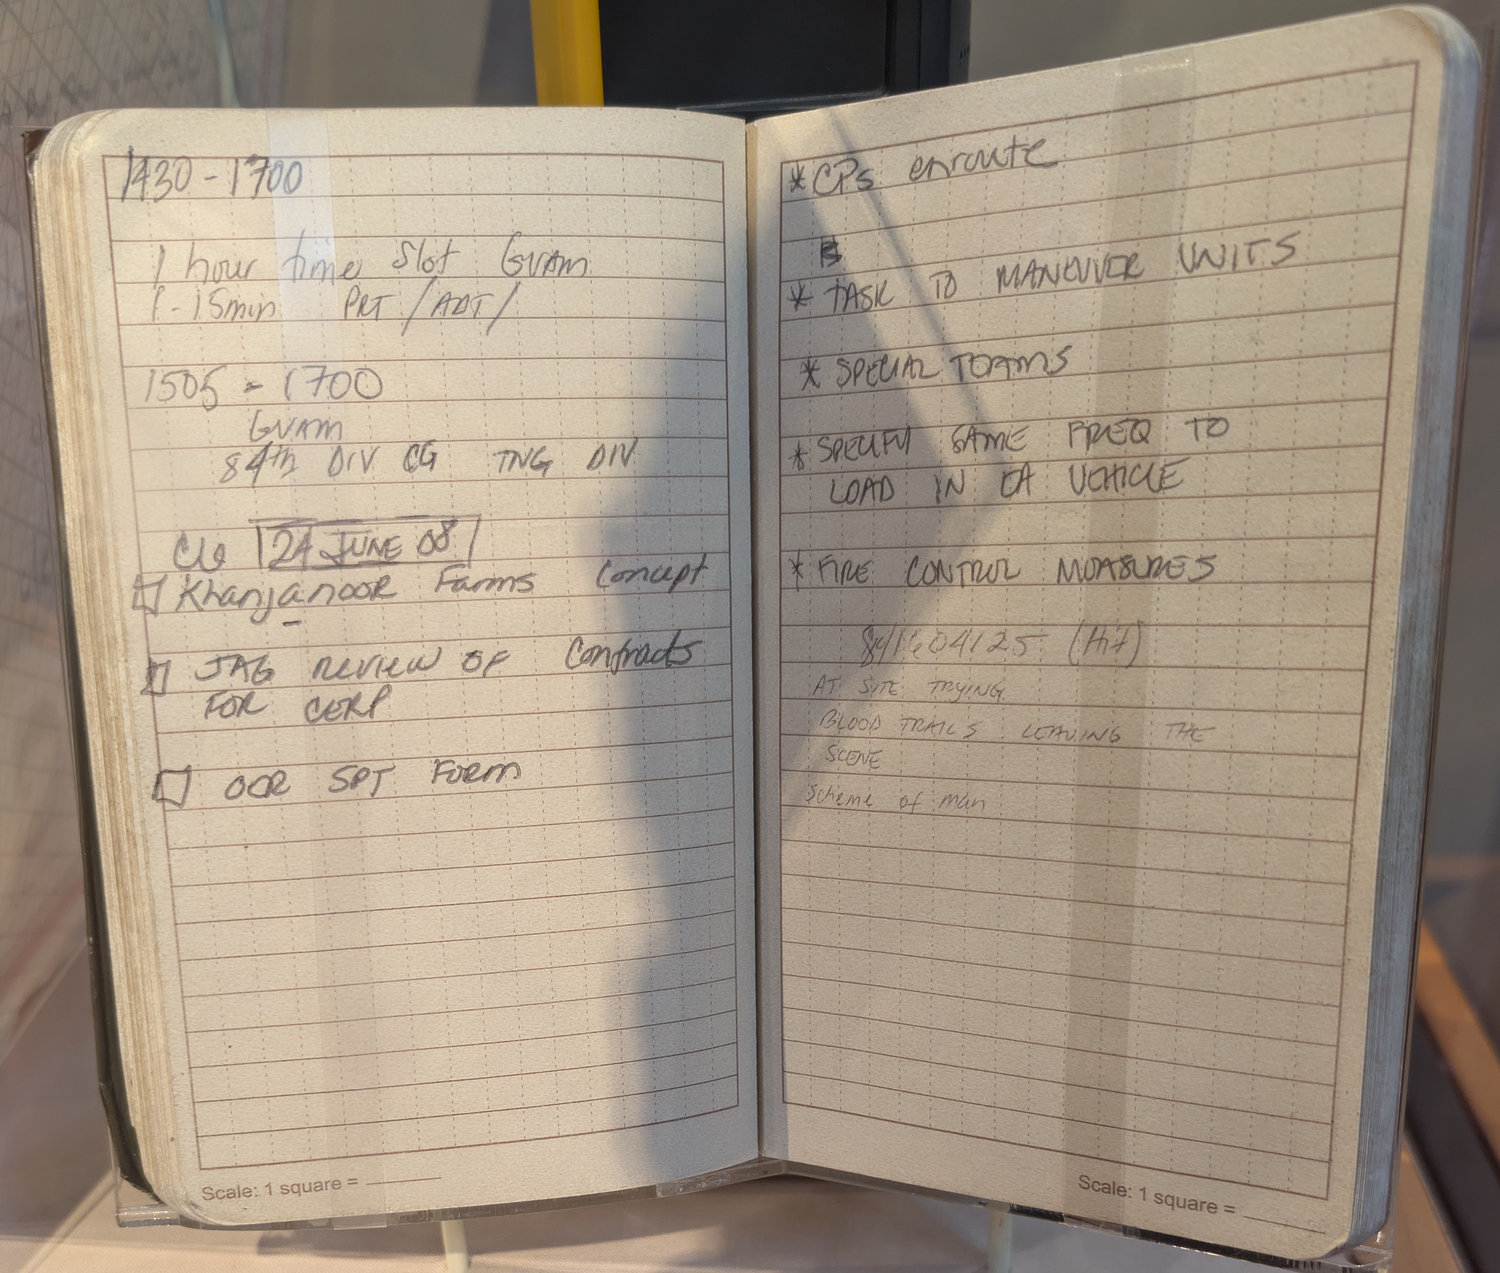 1430 - 1700
1 hour time slot GUAM
1-15min PRT / ADT /
1505 - 1700
GUAM
84th DIV CG TNG DIV
24 JUNE 08
Khanjanoor Farms Concept
JAG REVIEW OF Contracts
FOR CERP
OCR SPT FORM
Scale: 1 square =
* CPs enroute
* TASK TO MANEUVER UNITS
* SPECIAL TEAMS
* SPECIFY SAME FREQ TO
LOAD IN EA VEHICLE
* FIRE CONTROL MEASURES
(Hit)
AT SITE TRYING
BLOOD TRAILS LEAVING THE
SCENE
Scheme of man
Scale: 1 square =